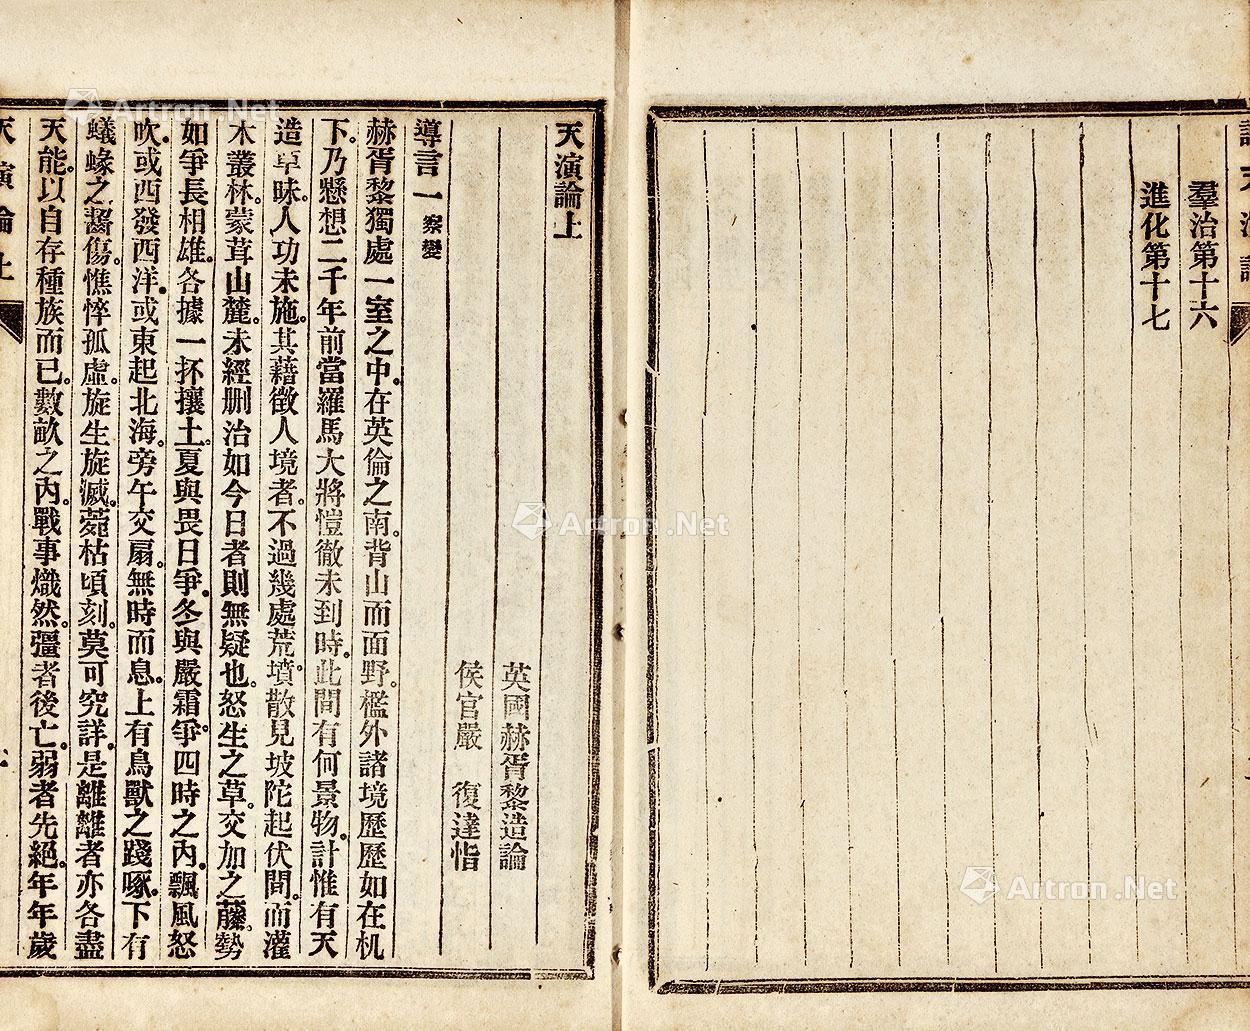 羣治第十六
進化第十七
天演論上
英國赫胥黎造論
侯官嚴 復達恉
導言一 察變
赫胥黎獨處一室之中。在英倫之南。背山而面野。檻外諸境歷歷如在机
下。乃懸想二千年前當羅馬大將愷徹未到時。此間有何景物。計惟有天
造草昧。人功未施。其藉徵人境者。不過幾處荒墳。散見坡陀起伏間。而灌
木叢林。蒙茸山麓。未經刪治如今日者則無疑也。怒生之草。交加之藤。勢
如爭長相雄。各據一抔攘土。夏與畏日爭。冬與嚴霜爭。四時之內。飄風怒
吹。或西發西洋。或東起北海。旁午交扇。無時而息。上有鳥獸之踐啄。下有
蟻蝝之齧傷。憔悴孤虛。旋生旋滅。菀枯頃刻。莫可究詳。是離離者亦各盡
天能。以自存種族而已。數畝之內。戰事熾然。彊者後亡。弱者先絕。年年歲
天演論上
Artron.Net
Artron.Net
Artron.Net
Artron.Net